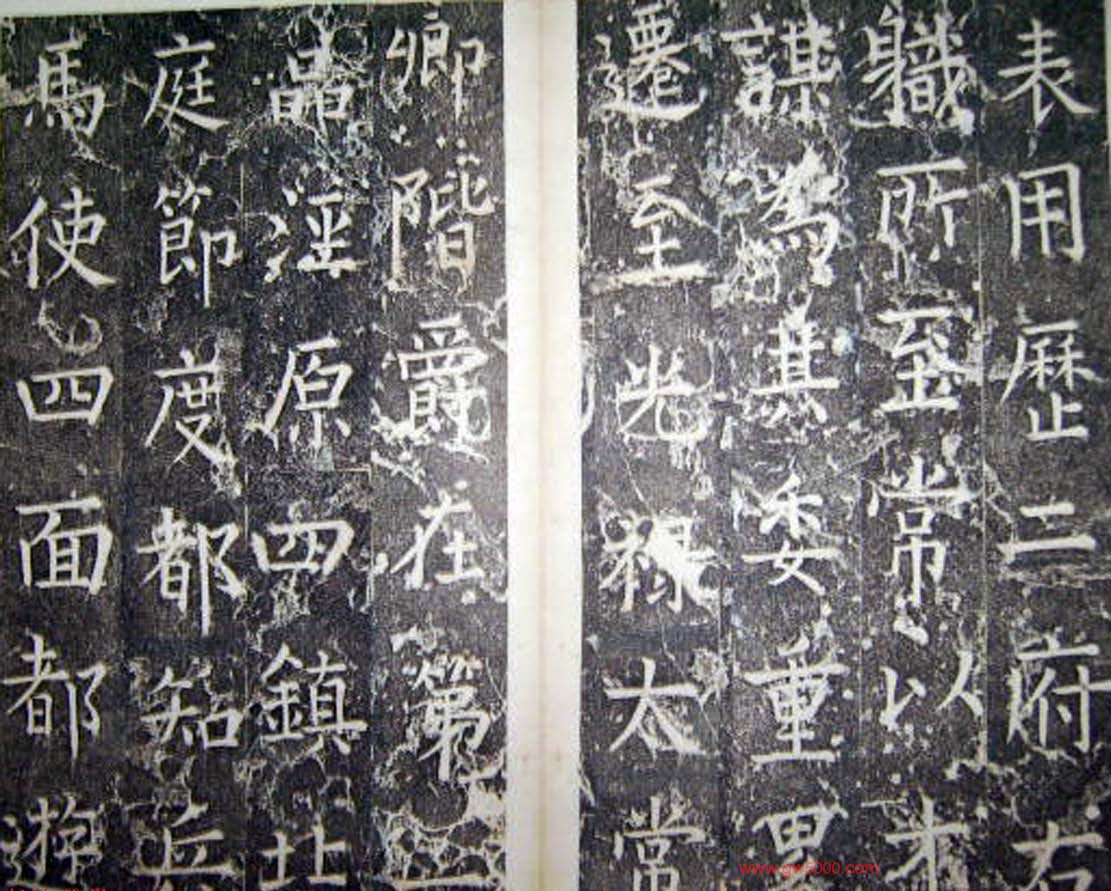 表用歷二府右
職所至常以才
謀為其委重累
遷至光祿太常
卿階爵在第一
品涇原四鎮北
庭節度都知兵
馬使四面都遊